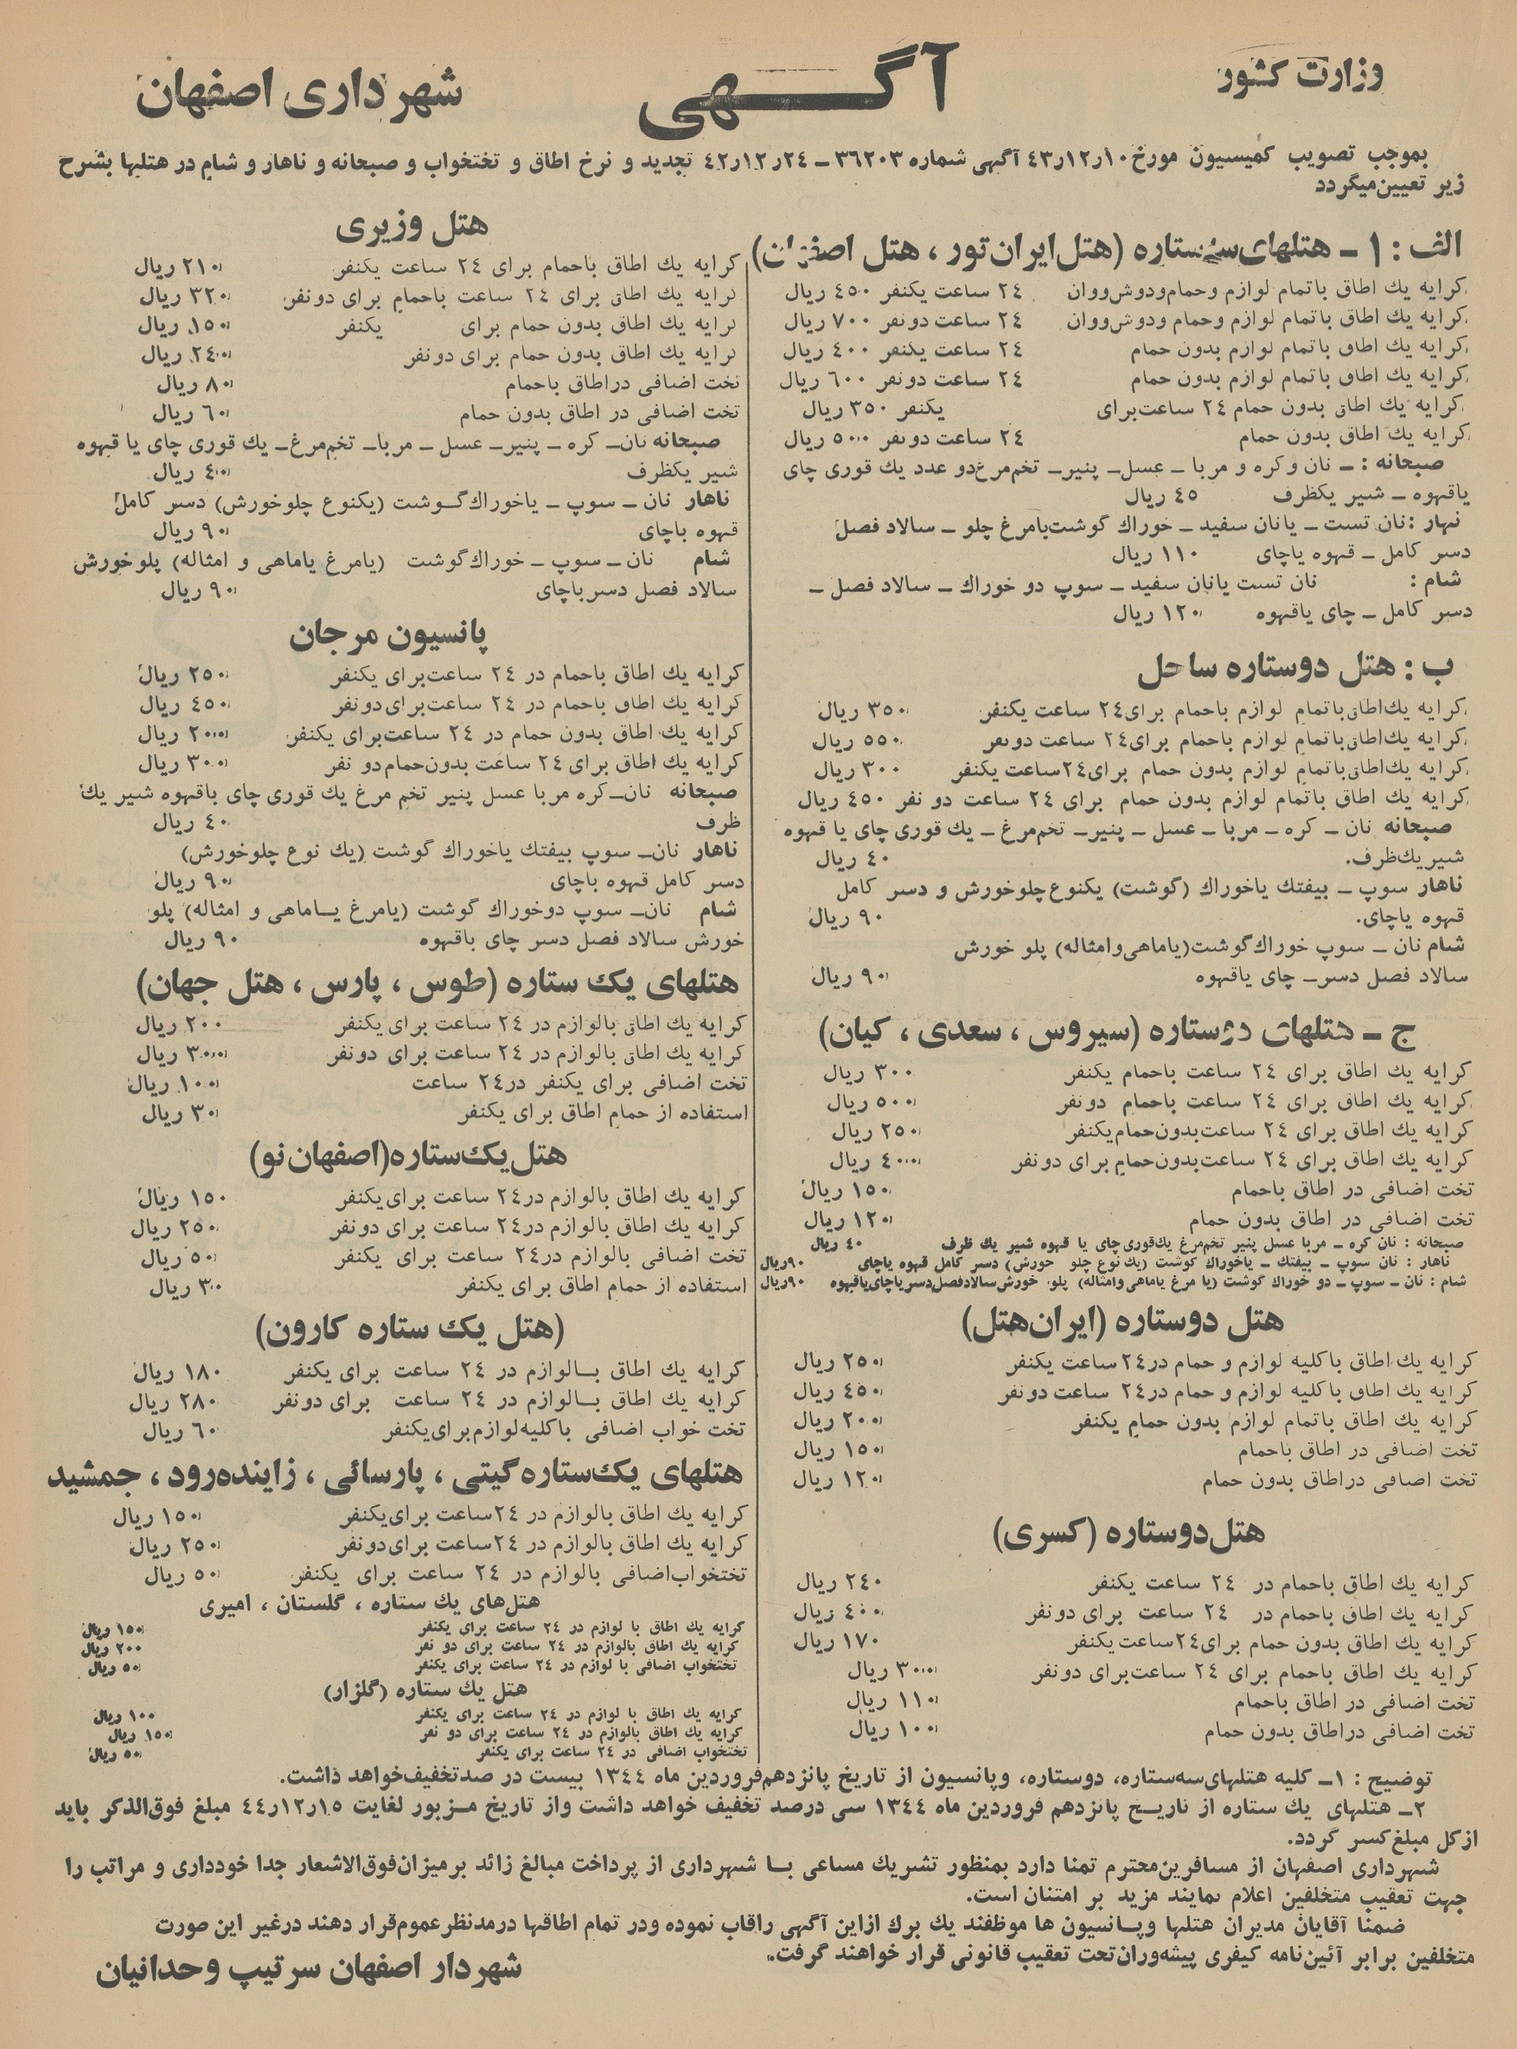 وزارت کشور
آگهی
شهرداری اصفهان
بموجب تصویب کمیسیون مورخ ۱۰ر۱۲ر۴۳ آگهی شماره ۳۶۲۰۳ ـ ۲۴ر۱۲ر۴۲ تجدید و نرخ اطاق و تختخواب و صبحانه و ناهار و شام در هتلها بشرح
زیر تعیین‌میگردد
الف : ۱ ـ هتلهای‌سه‌ستاره (هتل‌ایران‌تور ، هتل اصفهان)
کرایه یك اطاق باتمام لوازم وحمام‌ودوش‌ووان ۲۴ ساعت یکنفر ۴۵۰ ریال
کرایه یك اطاق باتمام لوازم وحمام ودوش‌ووان ۲۴ ساعت دونفر ۷۰۰ ریال
کرایه یك اطاق باتمام لوازم بدون حمام ۲۴ ساعت یکنفر ۴۰۰ ریال
کرایه یك اطاق باتمام لوازم بدون حمام ۲۴ ساعت دونفر ۶۰۰ ریال
کرایه یك اطاق بدون حمام ۲۴ ساعت‌برای یکنفر ۳۵۰ ریال
کرایه یك اطاق بدون حمام ۲۴ ساعت دونفر ۵۰۰ ریال
صبحانه : ـ نان وکره و مربا ـ عسل‌ـ پنیر‌ـ تخم‌مرغ‌دو عدد یك قوری چای
یاقهوه ـ شیر یکظرف ۴۵ ریال
نهار : نان تست ـ یانان سفید ـ خوراك گوشت‌بامرغ چلو ـ سالاد فصل
دسر کامل ـ قهوه یاچای ۱۱۰ ریال
شام : نان تست یانان سفید ـ سوپ دو خوراك ـ سالاد فصل ـ
دسر کامل ـ چای یاقهوه ۱۲۰ ریال
ب : هتل دوستاره ساحل
کرایه یك‌اطاق‌باتمام لوازم باحمام برای۲۴ ساعت یکنفر ۳۵۰ ریال
کرایه یك‌اطاق‌باتمام لوازم باحمام برای۲۴ ساعت دونفر ۵۵۰ ریال
کرایه یك‌اطاق‌باتمام لوازم بدون حمام برای۲۴ساعت یکنفر ۳۰۰ ریال
کرایه یك اطاق باتمام لوازم بدون حمام برای ۲۴ ساعت دو نفر ۴۵۰ ریال
صبحانه نان ـ کره ـ مربا ـ عسل ـ پنیر‌ـ تخم‌مرغ ـ یك قوری چای یا قهوه
شیریك‌ظرف. ۴۰ ریال
ناهار سوپ ـ بیفتك یاخوراك (گوشت) یکنوع‌چلوخورش و دسر کامل
قهوه یاچای. ۹۰ ریال
شام نان ـ سوپ خوراك‌گوشت(یاماهی‌وامثاله) پلو خورش
سالاد فصل دسر‌ـ چای یاقهوه ۹۰ ریال
ج ـ هتلهای دوستاره (سیروس ، سعدی ، کیان)
کرایه یك اطاق برای ۲۴ ساعت باحمام یکنفر ۳۰۰ ریال
کرایه یك اطاق برای ۲۴ ساعت باحمام دونفر ۵۰۰ ریال
کرایه یك اطاق برای ۲۴ ساعت‌بدون‌حمام‌یکنفر ۲۵۰ ریال
کرایه یك اطاق برای ۲۴ ساعت‌بدون‌حمام‌برای دونفر ۴۰۰ ریال
تخت اضافی در اطاق باحمام ۱۵۰ ریال
تخت اضافی در اطاق بدون حمام ۱۲۰ ریال
صبحانه : نان کره ـ مربا عسل پنیر تخم‌مرغ یك‌قوری‌چای یا قهوه شیر یك ظرف ۴۰ ریال
ناهار : نان سوپ ـ بیفتك ـ یاخوراك گوشت (یك‌نوع چلو خورش) دسر کامل قهوه یاچای ۹۰ریال
شام : نان ـ سوپ ـ دو خوراك گوشت (یا مرغ یاماهی‌وامثاله) پلو خورش‌سالادفصل‌دسریاچای‌یاقهوه ۹۰ریال
هتل دوستاره (ایران‌هتل)
کرایه یك اطاق باکلیه لوازم و حمام در۲۴ ساعت یکنفر ۲۵۰ ریال
کرایه یك اطاق باکلیه لوازم و حمام در۲۴ ساعت دونفر ۴۵۰ ریال
کرایه یك اطاق باتمام لوازم بدون حمام یکنفر ۲۰۰ ریال
تخت اضافی در اطاق باحمام ۱۵۰ ریال
تخت اضافی دراطاق بدون حمام ۱۲۰ ریال
هتل‌دوستاره (کسری)
کرایه یك اطاق باحمام در ۲۴ ساعت یکنفر ۲۴۰ ریال
کرایه یك اطاق باحمام در ۲۴ ساعت برای دونفر ۴۰۰ ریال
کرایه یك اطاق بدون حمام برای۲۴ساعت‌یکنفر ۱۷۰ ریال
کرایه یك اطاق باحمام برای ۲۴ ساعت‌برای دونفر ۳۰۰ ریال
تخت اضافی در اطاق باحمام ۱۱۰ ریال
تخت اضافی دراطاق بدون حمام ۱۰۰ ریال
هتل وزیری
کرایه یك اطاق باحمام برای ۲۴ ساعت یکنفر ۲۱۰ ریال
کرایه یك اطاق برای ۲۴ ساعت باحمام برای دونفر ۳۲۰ ریال
کرایه یك اطاق بدون حمام برای یکنفر ۱۵۰ ریال
کرایه یك اطاق بدون حمام برای دونفر ۲۴۰ ریال
تخت اضافی دراطاق باحمام ۸۰ ریال
تخت اضافی در اطاق بدون حمام ۶۰ ریال
صبحانه نان‌ـ کره ـ پنیر ـ عسل ـ مربا‌ـ تخم‌مرغ‌ـ یك قوری چای یا قهوه
شیر یکظرف ۴۰ ریال
ناهار نان ـ سوپ ـ یاخوراك‌گوشت (یکنوع چلوخورش) دسر کامل
قهوه باچای ۹۰ ریال
شام نان ـ سوپ ـ خوراك‌گوشت (یامرغ یاماهی و امثاله) پلوخورش
سالاد فصل دسرباچای ۹۰ ریال
پانسیون مرجان
کرایه یك اطاق باحمام در ۲۴ ساعت‌برای یکنفر ۲۵۰ ریال
کرایه یك اطاق باحمام در ۲۴ ساعت‌برای‌دونفر ۴۵۰ ریال
کرایه یك اطاق بدون حمام در ۲۴ ساعت‌برای یکنفر ۲۰۰ ریال
کرایه یك اطاق برای ۲۴ ساعت بدون‌حمام‌دو نفر ۳۰۰ ریال
صبحانه نان‌ـ‌کره مربا عسل پنیر تخم مرغ یك قوری چای باقهوه شیر یك
ظرف ۴۰ ریال
ناهار نان‌ـ سوپ بیفتك یاخوراك گوشت (یك نوع چلوخورش)
دسر کامل قهوه باچای ۹۰ ریال
شام نان‌ـ سوپ دوخوراك گوشت (یامرغ یاماهی و امثاله) پلو
خورش سالاد فصل دسر چای باقهوه ۹۰ ریال
هتلهای یك ستاره (طوس ، پارس ، هتل جهان)
کرایه یك اطاق بالوازم در ۲۴ ساعت برای یکنفر ۲۰۰ ریال
کرایه یك اطاق بالوازم در ۲۴ ساعت برای دونفر ۳۰۰ ریال
تخت اضافی برای یکنفر در۲۴ ساعت ۱۰۰ ریال
استفاده از حمام اطاق برای یکنفر ۳۰ ریال
هتل‌یك‌ستاره(اصفهان‌نو)
کرایه یك اطاق بالوازم در۲۴ ساعت برای‌یکنفر ۱۵۰ ریال
کرایه یك اطاق بالوازم در۲۴ ساعت برای دونفر ۲۵۰ ریال
تخت اضافی بالوازم در۲۴ ساعت برای یکنفر ۵۰ ریال
استفاده از حمام اطاق برای یکنفر ۳۰ ریال
(هتل یك ستاره کارون)
کرایه یك اطاق بالوازم در ۲۴ ساعت برای یکنفر ۱۸۰ ریال
کرایه یك اطاق بالوازم در ۲۴ ساعت برای دونفر ۲۸۰ ریال
تخت خواب اضافی باکلیه‌لوازم‌برای‌یکنفر ۶۰ ریال
هتلهای یك‌ستاره‌گیتی ، پارسائی ، زاینده‌رود ، جمشید
کرایه یك اطاق بالوازم در ۲۴ساعت برای‌یکنفر ۱۵۰ ریال
کرایه یك اطاق بالوازم در ۲۴ساعت برای‌دونفر ۲۵۰ ریال
تختخواب‌اضافی بالوازم در ۲۴ ساعت برای یکنفر ۵۰ ریال
هتل‌های یك ستاره ، گلستان ، امیری
کرایه یك اطاق با لوازم در ۲۴ ساعت برای یکنفر ۱۵۰ ریال
کرایه یك اطاق بالوازم در ۲۴ ساعت برای دو نفر ۲۰۰ ریال
تختخواب اضافی با لوازم در ۲۴ ساعت برای یکنفر ۵۰ ریال
هتل یك ستاره (گلزار)
کرایه یك اطاق با لوازم در ۲۴ ساعت برای یکنفر ۱۰۰ ریال
کرایه یك اطاق بالوازم در ۲۴ ساعت برای دو نفر ۱۵۰ ریال
تختخواب اضافی در ۲۴ ساعت برای یکنفر ۵۰ ریال
توضیح : ۱ـ کلیه هتلهای‌سه‌ستاره، دوستاره، وپانسیون از تاریخ پانزدهم‌فروردین ماه ۱۳۴۴ بیست در صدتخفیف‌خواهد داشت.
۲ـ هتلهای یك ستاره از تاریخ پانزدهم فروردین ماه ۱۳۴۴ سی درصد تخفیف خواهد داشت واز تاریخ مزبور لغایت ۱۵ر۱۲ر۴۴ مبلغ فوق‌الذکر باید
ازکل مبلغ‌کسر گردد.
شهرداری اصفهان از مسافرین‌محترم تمنا دارد بمنظور تشریك مساعی با شهرداری از پرداخت مبالغ زائد برمیزان‌فوق‌الاشعار جدا خودداری و مراتب را
جهت تعقیب متخلفین اعلام نمایند مزید بر امتنان است.
ضمنا آقایان مدیران هتلها وپانسیون ها موظفند یك برك ازاین آگهی راقاب نموده ودر تمام اطاقها درمدنظرعموم‌قرار دهند درغیر این صورت
متخلفین برابر آئین‌نامه کیفری پیشه‌وران‌تحت تعقیب قانونی قرار خواهند گرفت.
شهردار اصفهان سرتیپ وحدانیان